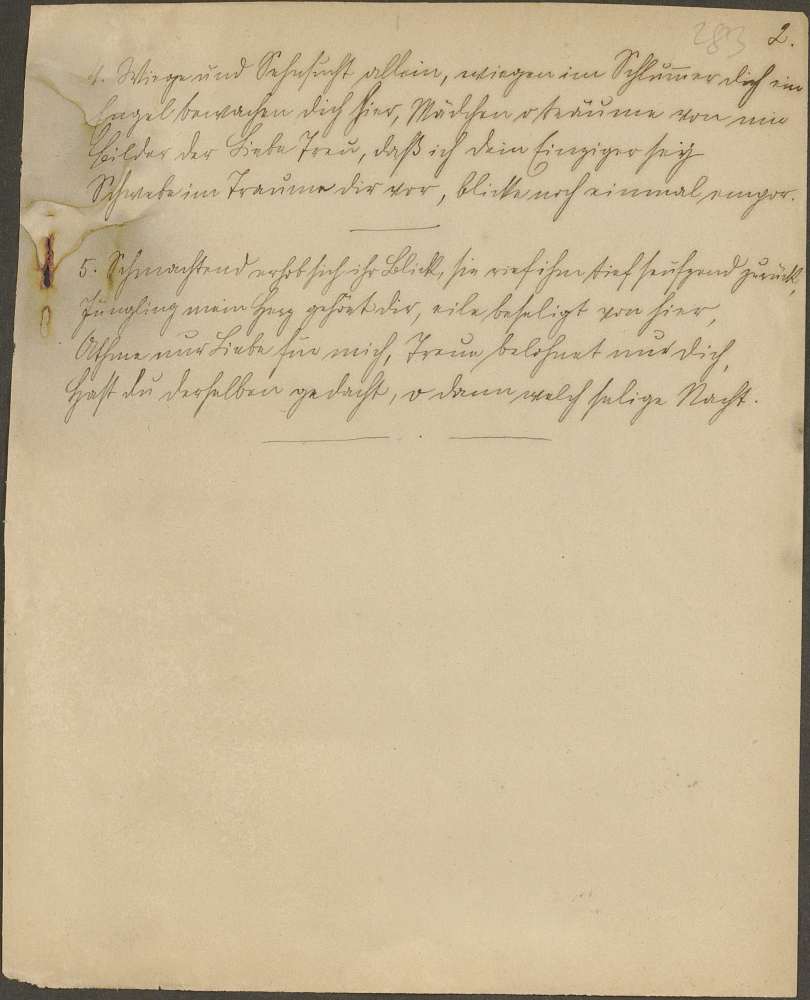 283 2.
4. Wiege und Sehnsucht allein, wiegen im Schlum̅er dich ein
Engel bewachen dich hier, Mädchen o träume von mir
Bilder der Liebe Treu, daß ich dein Einziger sey
Schwebe im Traume dir vor, blicke noch einmal empor.
5. Schmachtend erhob sich ihr Blick, sie rief ihm tief seufzend zurück,
Jüngling mein Herz gehöret dir, eile beseligt von hier,
Athme nur Liebe für mich, Treue belohnet nur dich,
Hast du derselben gedacht, o dann welch selige Nacht.